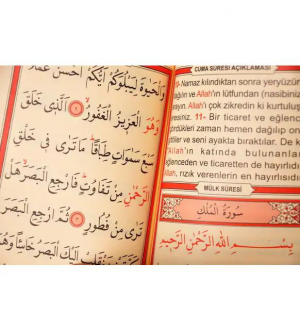 وَالْحَيٰوةَ لِيَبْلُوَكُمْ اَيُّكُمْ اَحْسَنُ عَمَلًا
وَهُوَ الْعَزِيزُ الْغَفُورُ اَلَّذِى خَلَقَ
سَبْعَ سَمٰوَاتٍ طِبَاقًا مَا تَرٰى فِى خَلْقِ
الرَّحْمٰنِ مِنْ تَفَاوُتٍ فَارْجِعِ الْبَصَرَ هَلْ
تَرٰى مِنْ فُطُورٍ ثُمَّ ارْجِعِ الْبَصَرَ
يَنْقَلِبْ اِلَيْكَ الْبَصَرُ خَاسِئًا وَهُوَ
CUMA SÛRESİ AÇIKLAMASI
Namaz kılındıktan sonra yeryüzün
dağılın ve Allah'ın lütfundan (nasibiniz
Allah'ı çok zikredin ki kurtuluş
11- Bir ticaret ve eğlenc
gördükleri zaman hemen dağılıp on
ve seni ayakta bıraktılar. De k
Allah'ın katında bulunanlar
eğlenceden ve ticaretten de hayırlıdı
Allah, rızık verenlerin en hayırlısıdı
MÜLK SÛRESİ
سُورَةُ الْمُلْكِ
بِسْمِ اللهِ الرَّحْمٰنِ الرَّحِيمِ